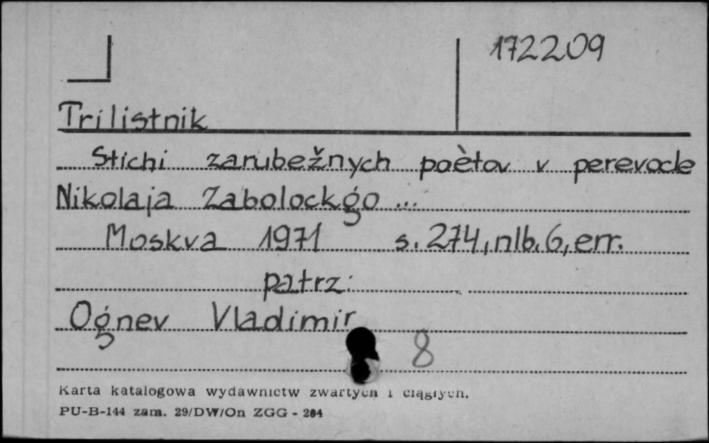 172209
Trilistnik
Stichi zarubežnych poètov v perevode
Nikolaja Zabolockgo ...
Moskva 1971 s. 274, nlb. 6, err.
patrz:
Ognev Vladimir
8
Karta katalogowa wydawnictw zwartych i ciągłych.
PU-B-144 zam. 29/DW/On ZGG - 284